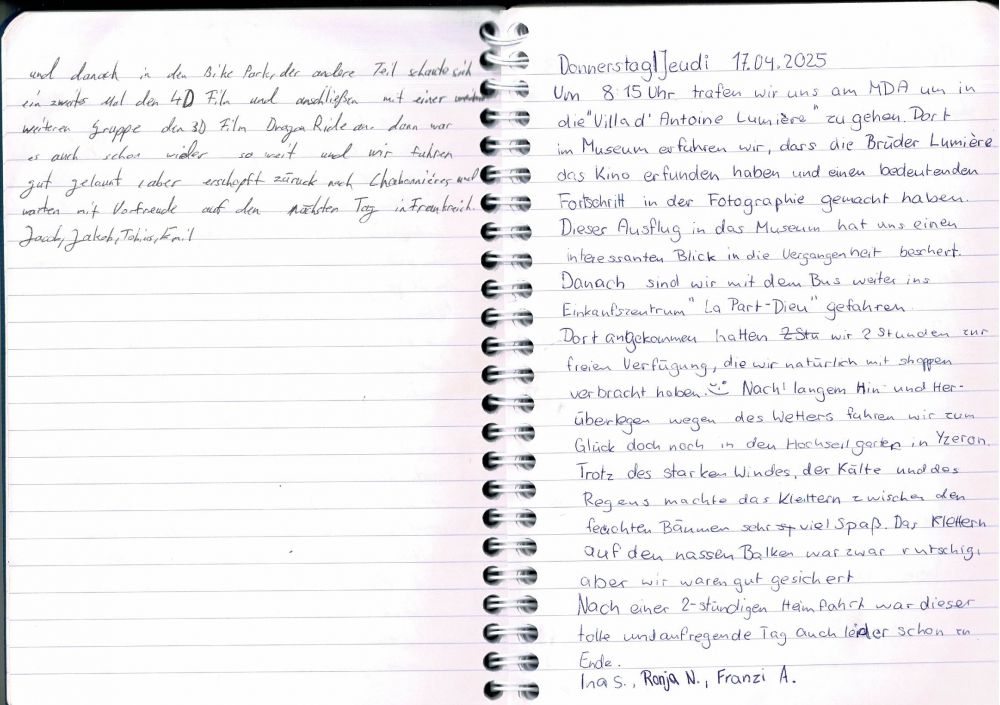 und danach in den Bike Park, der andere Teil schaute sich
ein zweites Mal den 4D Film und anschließen mit einer
weiteren Gruppe den 3D Film Dragon Ride an. dann war
es auch schon wieder so weit und wir fuhren
gut gelaunt, aber erschöpft zurück nach Charbonnières und
warten mit Vorfreude auf den nächsten Tag in Frankreich.
Jacob, Jakob, Tobias, Emil
Donnerstag|Jeudi 17.04.2025
Um 8:15 Uhr trafen wir uns am MDA um in
die "Villa d' Antoine Lumière" zu gehen. Dort
im Museum erfuhren wir, dass die Brüder Lumière
das Kino erfunden haben und einen bedeutenden
Fortschritt in der Fotographie gemacht haben.
Dieser Ausflug in das Museum hat uns einen
interessanten Blick in die Vergangenheit beschert.
Danach sind wir mit dem Bus weiter ins
Einkaufszentrum "La Part-Dieu" gefahren.
Dort angekommen hatten 2 Stu wir 2 Stunden zur
freien Verfügung, die wir natürlich mit shoppen
verbracht haben. Nach langem Hin- und Her-
überlegen wegen des Wetters fuhren wir zum
Glück doch noch in den Hochseilgarten in Yzeron.
Trotz des starken Windes, der Kälte und des
Regens machte das Klettern zwischen den
feuchten Bäumen sehr viel Spaß. Das Klettern
auf den nassen Balken war zwar rutschig,
aber wir waren gut gesichert
Nach einer 2-stündigen Heimfahrt war dieser
tolle und aufregende Tag auch leider schon zu
Ende.
Ina S., Ronja N., Franzi A.